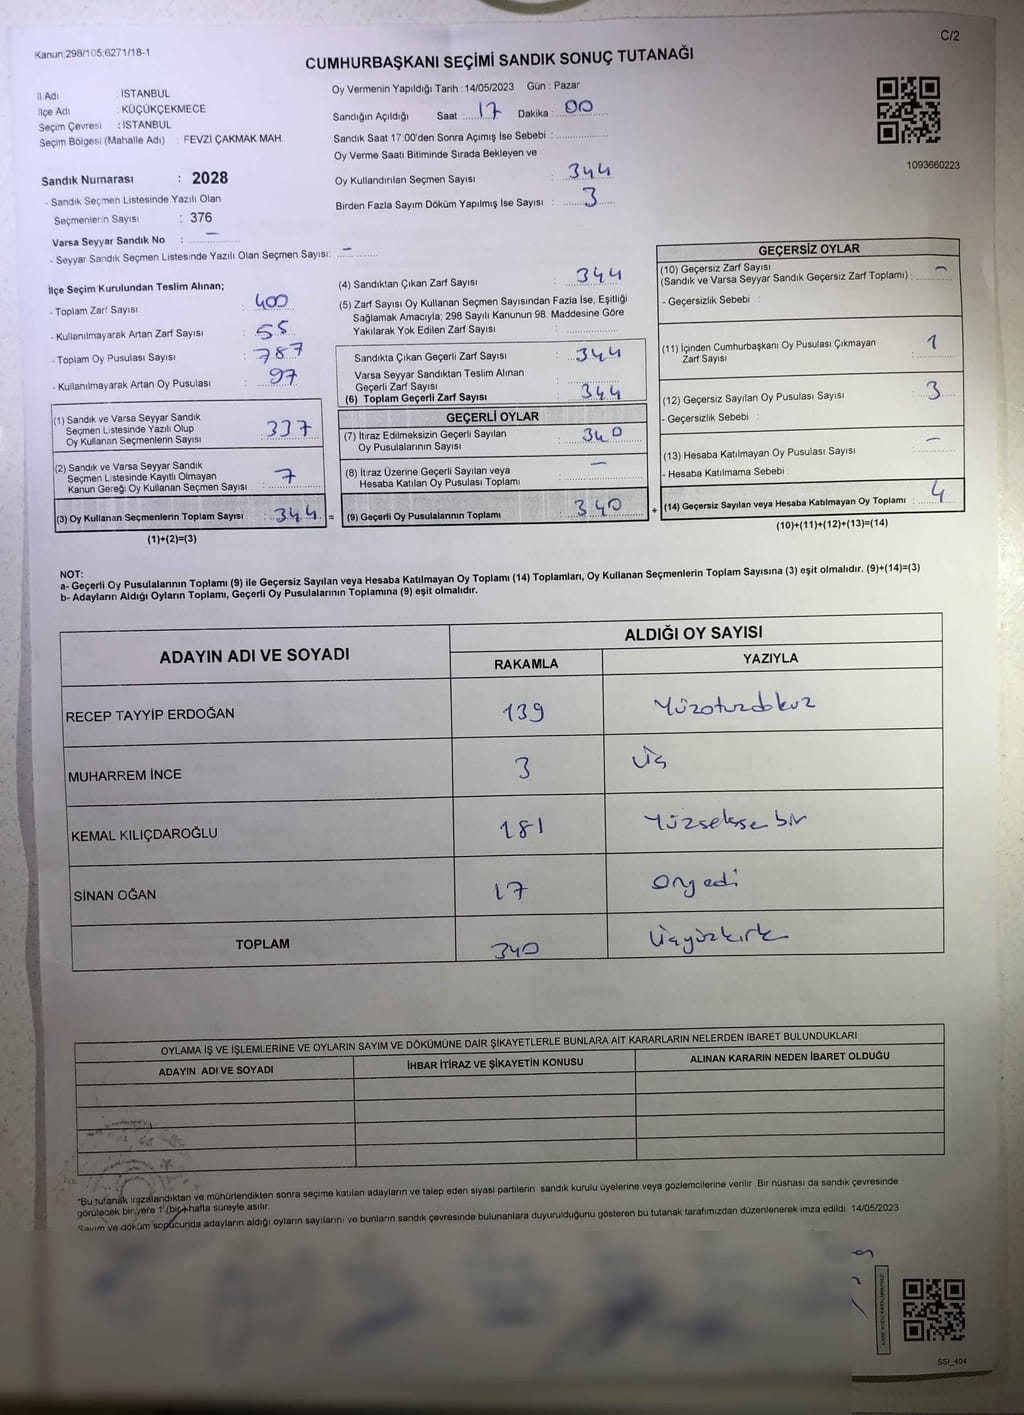 Kanun:298/105;6271/18-1
C/2
CUMHURBAŞKANI SEÇİMİ SANDIK SONUÇ TUTANAĞI
İl Adı : İSTANBUL
İlçe Adı : KÜÇÜKÇEKMECE
Seçim Çevresi : İSTANBUL
Seçim Bölgesi (Mahalle Adı) : FEVZİ ÇAKMAK MAH.
Sandık Numarası : 2028
- Sandık Seçmen Listesinde Yazılı Olan
Seçmenlerin Sayısı : 376
Varsa Seyyar Sandık No : –
- Seyyar Sandık Seçmen Listesinde Yazılı Olan Seçmen Sayısı: –
Oy Vermenin Yapıldığı Tarih :14/05/2023 Gün : Pazar
Sandığın Açıldığı Saat : 17 Dakika : 00
Sandık Saat 17:00'den Sonra Açımış İse Sebebi :
Oy Verme Saati Bitiminde Sırada Bekleyen ve
Oy Kullandırılan Seçmen Sayısı : 344
Birden Fazla Sayım Döküm Yapılmış İse Sayısı : 3
1093660223
İlçe Seçim Kurulundan Teslim Alınan;
- Toplam Zarf Sayısı : 400
- Kullanılmayarak Artan Zarf Sayısı : 55
- Toplam Oy Pusulası Sayısı : 787
- Kullanılmayarak Artan Oy Pusulası : 97
(1) Sandık ve Varsa Seyyar Sandık
Seçmen Listesinde Yazılı Olup
Oy Kullanan Seçmenlerin Sayısı : 337
(2) Sandık ve Varsa Seyyar Sandık
Seçmen Listesinde Kayıtlı Olmayan
Kanun Gereği Oy Kullanan Seçmen Sayısı : 7
(3) Oy Kullanan Seçmenlerin Toplam Sayısı : 344 =
(1)+(2)=(3)
(4) Sandıktan Çıkan Zarf Sayısı : 344
(5) Zarf Sayısı Oy Kullanan Seçmen Sayısından Fazla İse, Eşitliği
Sağlamak Amacıyla; 298 Sayılı Kanunun 98. Maddesine Göre
Yakılarak Yok Edilen Zarf Sayısı :
Sandıkta Çıkan Geçerli Zarf Sayısı : 344
Varsa Seyyar Sandıktan Teslim Alınan
Geçerli Zarf Sayısı :
(6) Toplam Geçerli Zarf Sayısı : 344
GEÇERLİ OYLAR
(7) İtiraz Edilmeksizin Geçerli Sayılan
Oy Pusulalarının Sayısı : 340
(8) İtiraz Üzerine Geçerli Sayılan veya
Hesaba Katılan Oy Pusulası Toplamı : –
(9) Geçerli Oy Pusulalarının Toplamı : 340 +
GEÇERSİZ OYLAR
(10) Geçersiz Zarf Sayısı
(Sandık ve Varsa Seyyar Sandık Geçersiz Zarf Toplamı) : –
- Geçersizlik Sebebi :
(11) İçinden Cumhurbaşkanı Oy Pusulası Çıkmayan
Zarf Sayısı : 1
(12) Geçersiz Sayılan Oy Pusulası Sayısı : 3
- Geçersizlik Sebebi :
(13) Hesaba Katılmayan Oy Pusulası Sayısı : –
- Hesaba Katılmama Sebebi :
(14) Geçersiz Sayılan veya Hesaba Katılmayan Oy Toplamı : 4
(10)+(11)+(12)+(13)=(14)
NOT:
a- Geçerli Oy Pusulalarının Toplamı (9) ile Geçersiz Sayılan veya Hesaba Katılmayan Oy Toplamı (14) Toplamları, Oy Kullanan Seçmenlerin Toplam Sayısına (3) eşit olmalıdır. (9)+(14)=(3)
b- Adayların Aldığı Oyların Toplamı, Geçerli Oy Pusulalarının Toplamına (9) eşit olmalıdır.
ADAYIN ADI VE SOYADI
ALDIĞI OY SAYISI
RAKAMLA YAZIYLA
RECEP TAYYİP ERDOĞAN 139 Yüzotuzdokuz
MUHARREM İNCE 3 Üç
KEMAL KILIÇDAROĞLU 181 Yüzseksenbir
SİNAN OĞAN 17 Onyedi
TOPLAM 340 Üçyüzkırk
OYLAMA İŞ VE İŞLEMLERİNE VE OYLARIN SAYIM VE DÖKÜMÜNE DAİR ŞİKAYETLERLE BUNLARA AİT KARARLARIN NELERDEN İBARET BULUNDUKLARI
ADAYIN ADI VE SOYADI İHBAR İTİRAZ VE ŞİKAYETİN KONUSU ALINAN KARARIN NEDEN İBARET OLDUĞU
*Bu tutanak imzalandıktan ve mühürlendikten sonra seçime katılan adayların ve talep eden siyasi partilerin sandık kurulu üyelerine veya gözlemcilerine verilir. Bir nüshası da sandık çevresinde
görülecek bir yere 1 (bir) hafta süreyle asılır.
Sayım ve döküm sonucunda adayların aldığı oyların sayılarını ve bunların sandık çevresinde bulunanlara duyurulduğunu gösteren bu tutanak tarafımızdan düzenlenerek imza edildi. 14/05/2023
SSI_404